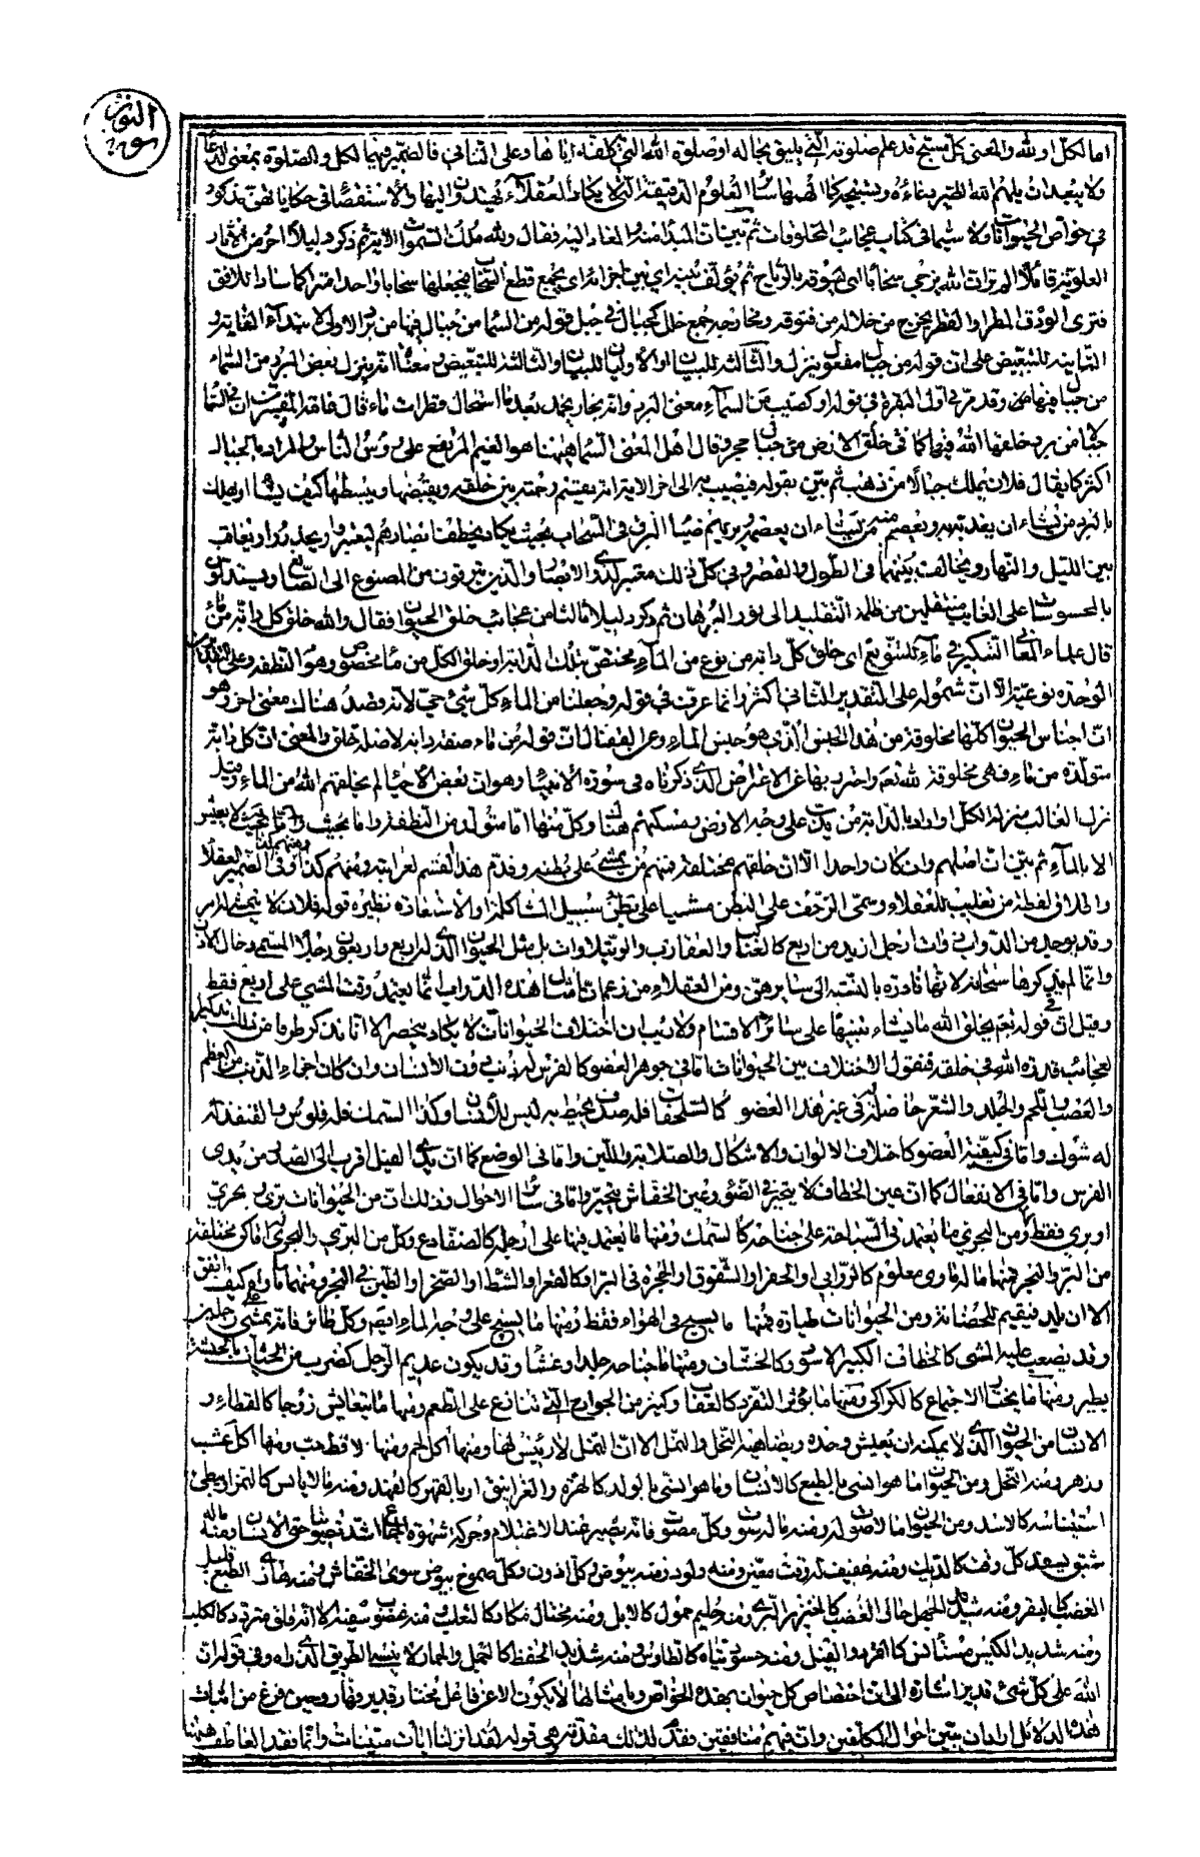 سورة النور
اما لكل او لله والمعنى كل مسبح قد علم صلوته التي يليق بحاله او صلوة الله التي كلفه اياها وعلى الثاني فالضمير فيهما لكل والصلوة بمعنى الدعاء
ولا يبعد ان يلهم الله الطير دعاءه وتسبيحه كما الهمها سائر العلوم الدقيقة التي لا يكاد العقلاء يهتدون اليها والاستقصاء في حكاياتها مذكور
في خواص الحيوانات ولا سيما في كتاب عجائب المخلوقات ثم بين ان المبدأ منه والمعاد اليه فقال ولله ملك السموات الاية ثم ذكر دليلا اخر من الاثار
العلوية قائلا الم تر ان الله يزجي سحابا اي يسوقه بالرياح ثم يؤلف بينه اي بين اجزائه اي يجمع قطع السحاب فيجعلها سحابا واحدا متراكما سادا للافق
فترى الودق المطر او القطر يخرج من خلاله من فتوقه ومخارجه جمع خلل كجبال في جبل قوله من السماء من جبال فيها من برد الاولى لابتداء الغاية و
الثانية للتبعيض على ان قوله من جبال مفعول ينزل والثالثة للبيان او الاوليان للبيان والثالثة للتبعيض ومعناه انه ينزل بعض البرد من السماء
من جبال فيها وقد مر في اول البقرة في قوله او كصيب من السماء معنى البرد وانه بخار يجمد بعد ما استحال قطرات ماء قال عامة المفسرين ان في السماء
جبالا من برد خلقها الله فيها كما في خلق الارض من جبال حجر وقال اهل المعنى السماء ههنا هو الغيم المرتفع على رؤس الناس والمراد بالجبال
اكثر كما يقال فلان يملك جبالا من ذهب ثم بين بقوله فيصيب به الى اخر الاية انه يقسم رحمته بين خلقه ويقبضها ويبسطها كيف يشاء او يهلك
بالبرد من يشاء ان يعذبه ويعصم منه من يشاء ان يعصمه ويريهم ضياء البرق في السحاب بحيث يكاد يخطف ابصارهم ليعتبروا ويحذروا ويعاقب
بين الليل والنهار ويخالف بينهما في الطول والقصر وفي كل ذلك معتبر لذوي الابصار والذين يترقون من المصنوع الى الصانع ويستدلون
بالمحسوسات على الغايب منتقلين من ظلمة التقليد الى نور البرهان ثم ذكر دليلا ثالثا من عجائب خلق الحيوان فقال والله خلق كل دابة من ماء
قال علماء المعاني التنكير في ماء للتنويع اي خلق كل دابة من نوع من الماء مختص بتلك الدابة او خلق الكل من ماء مخصوص وهو النطفة وعلى التقديرين
الوحدة نوعية الا ان شموله على التقدير الثاني اكثر وانما عرفت في قوله وجعلنا من الماء كل شيء حي لانه قصد هناك معنى اخر وهو
ان اجناس الحيوان كلها مخلوقة من هذا الجنس الذي هو جنس الماء وعن القفال ان قوله من ماء صفة دابة لا صلة خلق والمعنى ان كل دابة
متولدة من ماء فهي مخلوقة لله تعه واحترز بها عن الاعتراض الذي ذكرناه في سورة الانبياء وهو ان بعض الاحياء لم يخلقهم الله من الماء وقيل
نزل الغالب منزلة الكل او اراد بالدابة من يدب على وجه الارض ومسكنهم هناك وكل منها اما متولد من النطفة واما بحيث لا يعيش
الا بالماء ثم بين ان اصلهم وان كان واحدا الا ان خلقهم مختلفة فمنهم من يمشي على بطنه وقدم هذا القسم لغرابته ومنهم كذا ومنهم كذا وفي الضمير العقلاء
واطلاق لفظة من تغليب للعقلاء وسمي الزحف على البطن مشيا على سبيل المشاكلة او الاستعارة نظيره قوله فلان لا يمشي له امر
وقد يوجد من الدواب ذوات ارجل ازيد من اربع كالعناكب والعقارب والرتيلا وان بل مثل الحيوان الذي له اربع واربعون رجلا المسمى دخال الاذن
وانما لم يذكرها سبحانه لانها نادرة بالنسبة الى سايرهن ومن العقلاء من زعم ان امثال هذه الدواب انما يعتمد وقت المشي على اربع فقط
وقيل ان في قوله نعم يخلق الله ما يشاء تنبيها على سائر الاقسام ولا ريب ان اختلاف الحيوانات لا يكاد ينحصر الا انا نذكر طرفا من ذلك تذكيرا
لعجائب قدرة الله في خلقه فنقول الاختلاف بين الحيوانات اما في جوهر العضو كالفرس له ذنب دون الانسان وان كان اجزاء الذنب من العظم
والعصب واللحم والجلد والشعر حاصلة في غير هذا العضو كالسلحفاة فله صدف يحيط به ليس للانسان وكذا السمك فله فلوس والقنفذ
له شوك واما في كيفية العضو كاختلاف الالوان والاشكال والصلابة واللين واما في الوضع كما ان ثدي الفيل اقرب الى الصدر من ثدي
الفرس واما في الانفعال كما ان عين الخطاف لا يتحير في الضوء وعين الخفاش يتحير واما في سائر الاحوال وذلك ان من الحيوانات بري وبحري
او بري فقط ومن البحري ما يعتمد في السباحة على جناحه كالسمك ومنها ما يعتمد فيها على ارجله كالضفادع وكل من البري والبحري اماكن مختلفة
من البر والبحر فمنها ما له ماوى معلوم كالروابي او الحفر او الشقوق او الحجرة في البر او كالقعر او الشط او الصخر او الطين في البحر ومنها ما ماواه كيف اتفق
الا ان يلد فيقيم للحضانة ومن الحيوانات طيارة فمنها ما يسبح في الهواء فقط ومنها ما يسبح على وجه الماء ايضه وكل طائر فانه يمشي على رجليه
وقد يصعب عليه المشي كالخطاف الكبير الاسود كالخشاف ومنها ما جناحه جلد او غشاء وقد يكون عديم الرجل كضرب من الحيات بالحبشة
يطير ومنها ما يختار الاجتماع كالكراكي ومنها ما يؤثر التفرد كالعقاب وكثير من الجوارح التي تتنازع على الطعم ومنها ما يتعايش زوجا كالقطا و
الانسان من الحيوان الذي لا يمكنه ان يعيش وحده ويضاهيه النحل والنمل الا ان النمل لا رئيس لها ومنها اكل لحم ومنها لاقط حب ومنها اكل عشب
وزهر ومنه النحل ومن الحيوان اما هو انسي بالطبع كالانسان وما هو انسي بالولد كالهرة والغرانيق او بالقهر كالفهد ومنه ما لا يانس كالنمر او بطيء
استيناسه كالاسد ومن الحيوان ما لا صوت له ومنه ما له صوت وكل مصوت فانه يصير عند الاغتلام وحركة شهوة الجماع اشد تصويتا حتى الانسان ومنه ما له
شبق يسفد كل وقت كالديك ومنه عفيف له وقت معين ومنه ولود ومنه بيوض وكل اذون ولود وكل صموخ بيوض سوى الخفاش ومنه هادي الطبع قليل
الغضب كالبقر ومنه شديد الجهل حاد الغضب كالخنزير البري ومنه حليم حمول كالابل ومنه محتال مكار كالثعلب ومنه غضوب سفيه الا انه ملق متودد كالكلب
ومنه شديد الكيس مستأنس كالقرد والفيل ومنه حسود تياه كالطاوس ومنه شديد الحفظ كالجمل والحمار لا ينسى الطريق الذي راه وفي قوله ان
الله على كل شيء قدير اشارة الى ان اختصاص كل حيوان بهذه الخواص وبامثالها لا يكون الا عن فاعل مختار قدير قهار وحين فرغ من اثبات
هذه الدلائل اراد ان يبين احوال المكلفين وان فيهم منافقين فقدم لذلك مقدمة هي قوله لقد انزلنا ايات مبينات وانما فقد العاطف ههنا